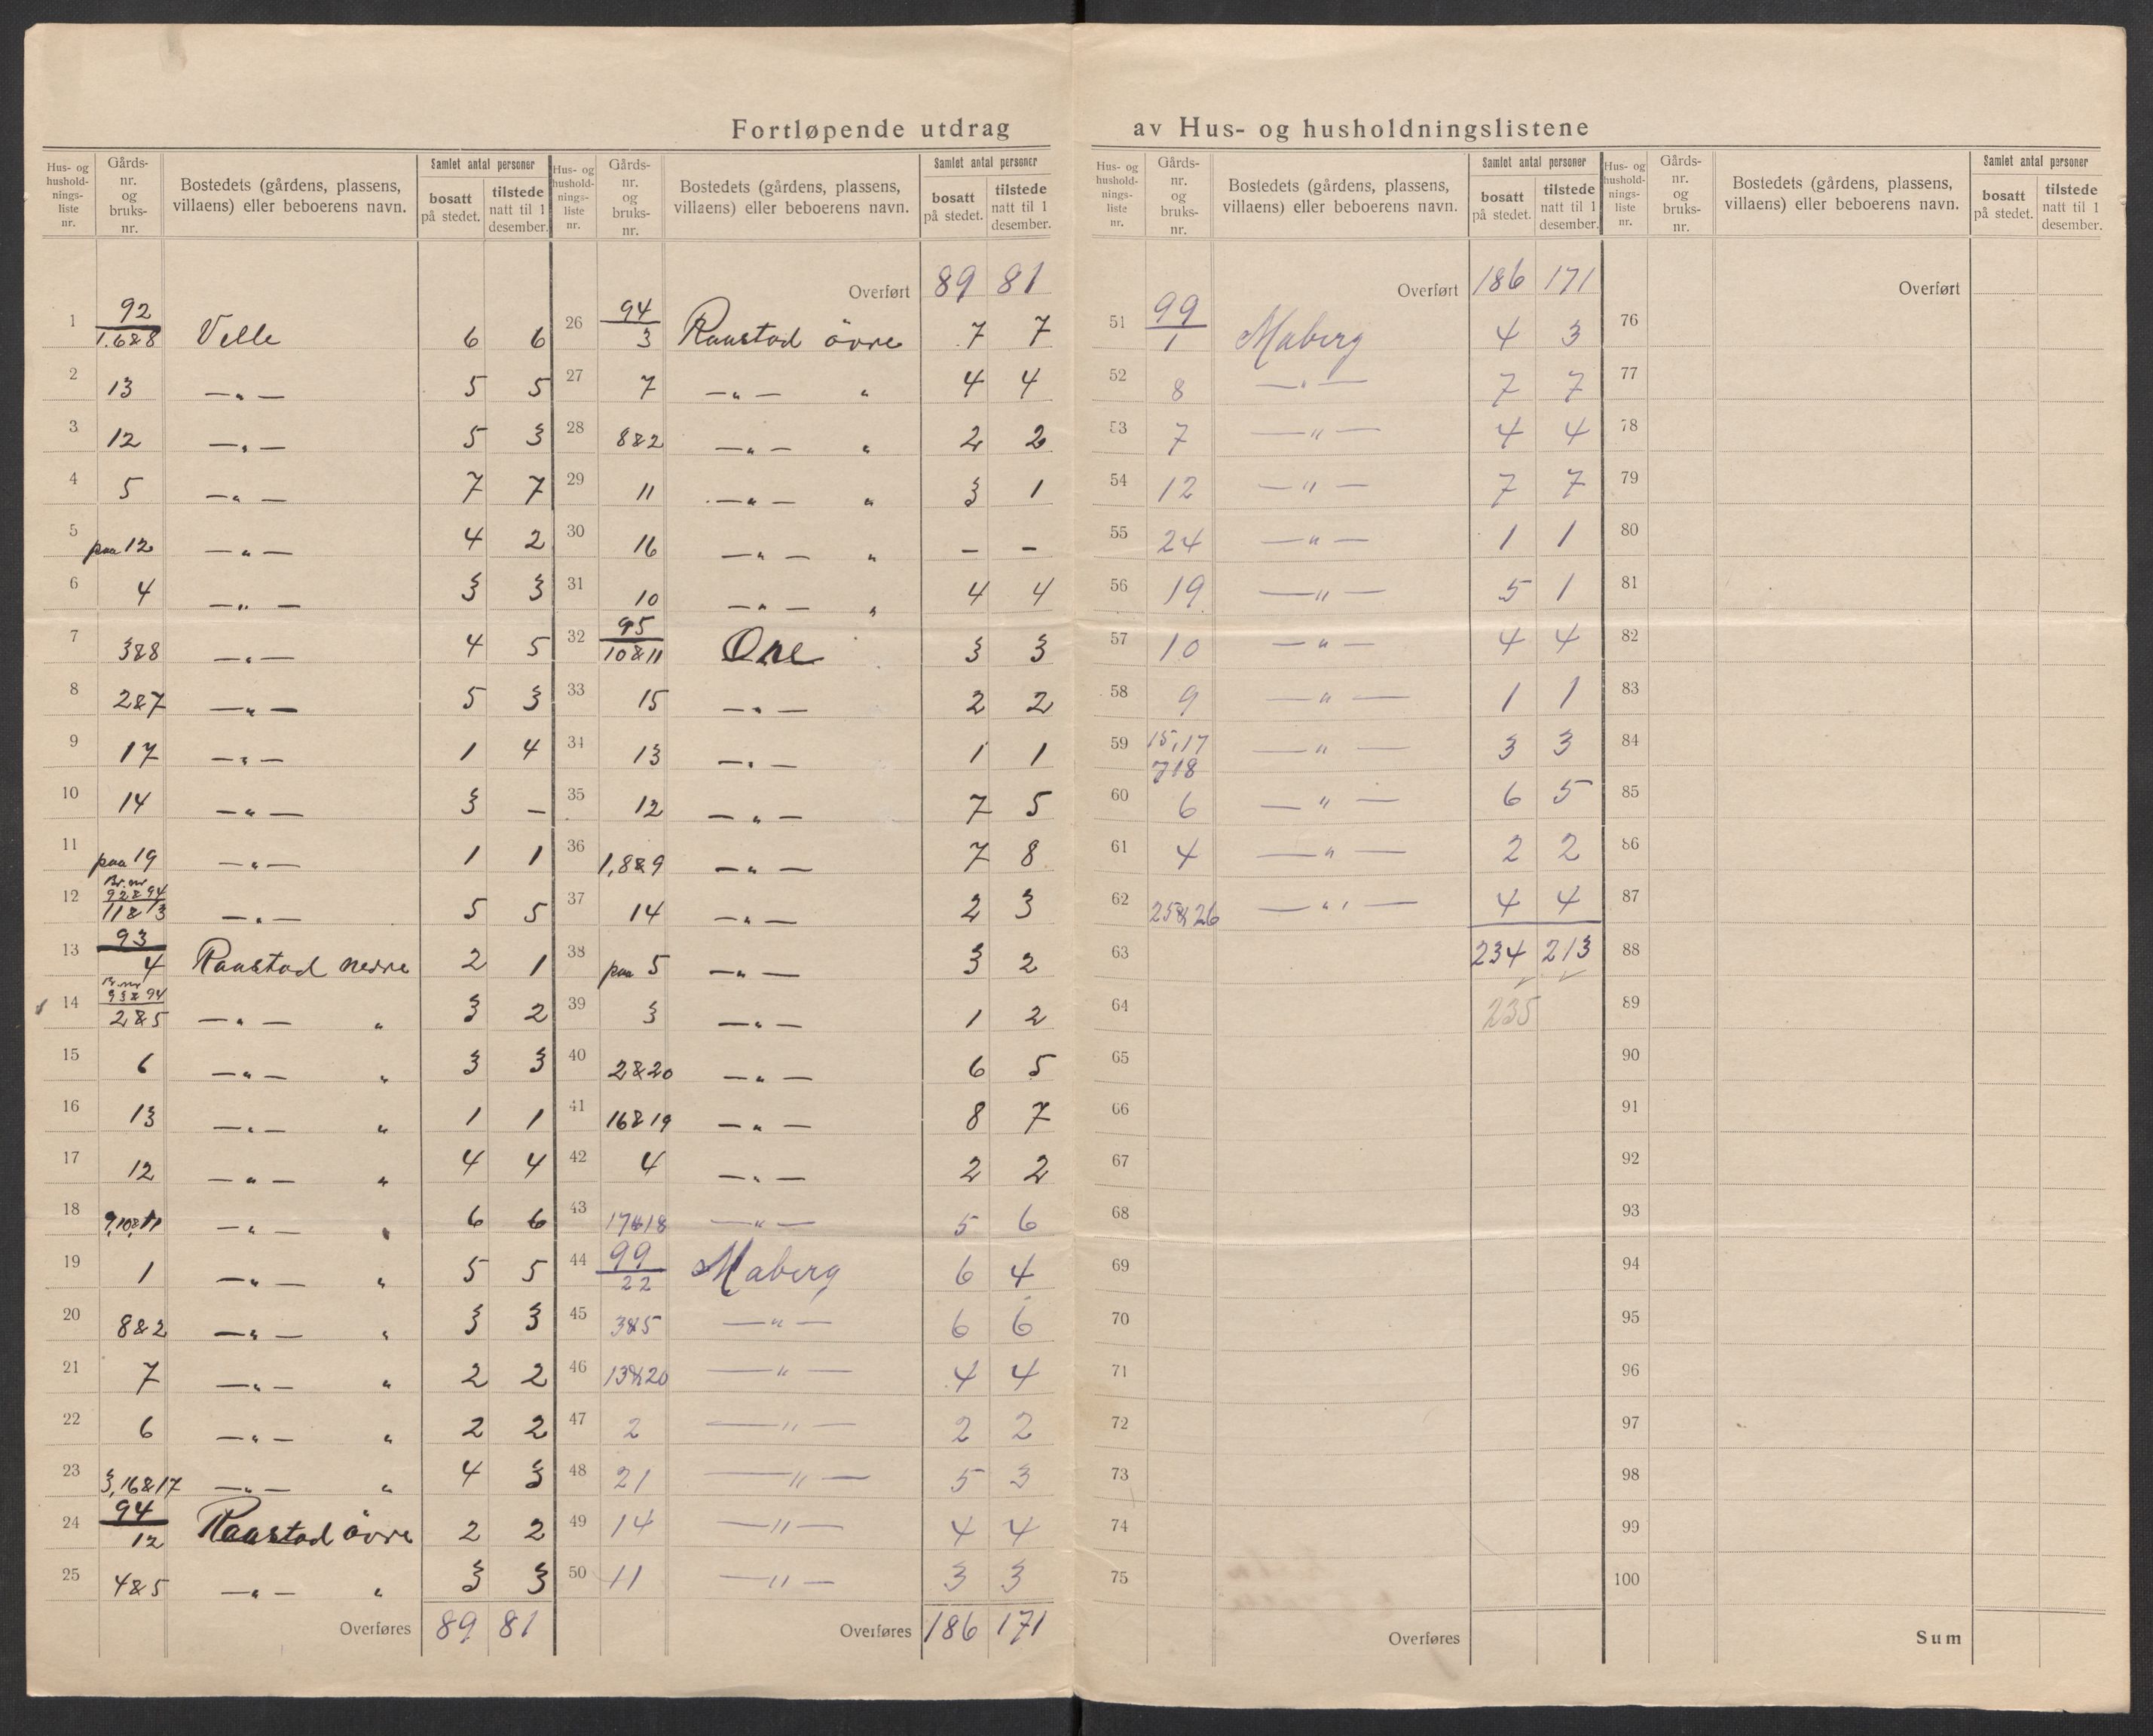 Fortløpende utdrag av Hus- og husholdningslistene
Hus- og husholdningsliste nr. | Gårds-nr. og bruks-nr. | Bostedets (gårdens, plassens, villaens) eller beboerens navn. | Samlet antal personer | bosatt på stedet. | tilstede natt til 1 desember.
1 92/1.6&8 Velle 6 6
2 13 —„— 5 5
3 12 —„— 5 3
4 5 —„— 7 7
5 paa 12 —„— 4 2
6 4 —„— 3 3
7 3&8 —„— 4 5
8 2&7 —„— 5 3
9 17 —„— 1 4
10 14 —„— 3 –
11 paa 19 —„— 1 1
12 Br.nr 92&94/11&13 —„— 5 5
13 93/4 Raastad nedre 2 1
14 Br.nr 93&94/2&5 —„— „ 3 2
15 6 —„— „ 3 3
16 13 —„— „ 1 1
17 12 —„— „ 4 4
18 9,10&11 —„— „ 6 6
19 1 —„— „ 5 5
20 8&2 —„— „ 3 3
21 7 —„— „ 2 2
22 6 —„— „ 2 2
23 3,16&17 —„— „ 4 3
24 94/12 Raastad övre 2 2
25 4&5 —„— „ 3 3
Overføres 89 81
Hus- og husholdningsliste nr. | Gårds-nr. og bruks-nr. | Bostedets (gårdens, plassens, villaens) eller beboerens navn. | Samlet antal personer | bosatt på stedet. | tilstede natt til 1 desember.
Overført 89 81
26 94/3 Raastad övre 7 7
27 7 —„— „ 4 4
28 8&2 —„— „ 2 2
29 11 —„— „ 3 1
30 16 —„— „ – –
31 10 —„— „ 4 4
32 95/10&11 One 3 3
33 15 —„— 2 2
34 13 —„— 1 1
35 12 —„— 7 5
36 1,8&9 —„— 7 8
37 14 —„— 2 3
38 paa 5 —„— 3 2
39 3 —„— 1 2
40 2&20 —„— 6 5
41 16&19 —„— 8 7
42 4 —„— 2 2
43 17&18 —„— 5 6
44 99/22 Maberg 6 4
45 3&5 —„— 6 6
46 13&20 —„— 4 4
47 2 —„— 2 2
48 21 —„— 5 3
49 14 —„— 4 4
50 11 —„— 3 3
Overføres 186 171
Hus- og husholdningsliste nr. | Gårds-nr. og bruks-nr. | Bostedets (gårdens, plassens, villaens) eller beboerens navn. | Samlet antal personer | bosatt på stedet. | tilstede natt til 1 desember.
Overført 186 171
51 99/1 Maberg 4 3
52 8 —„— 7 7
53 7 —„— 4 4
54 12 —„— 7 7
55 24 —„— 1 1
56 19 —„— 5 1
57 10 —„— 4 4
58 9 —„— 1 1
59 15,17 718 —„— 3 3
60 6 —„— 6 5
61 4 —„— 2 2
62 25&26 —„— 4 4
63 234 213
64 235
65
66
67
68
69
70
71
72
73
74
75
Overføres
Hus- og husholdningsliste nr. | Gårds-nr. og bruks-nr. | Bostedets (gårdens, plassens, villaens) eller beboerens navn. | Samlet antal personer | bosatt på stedet. | tilstede natt til 1 desember.
Overført
76
77
78
79
80
81
82
83
84
85
86
87
88
89
90
91
92
93
94
95
96
97
98
99
100
Sum